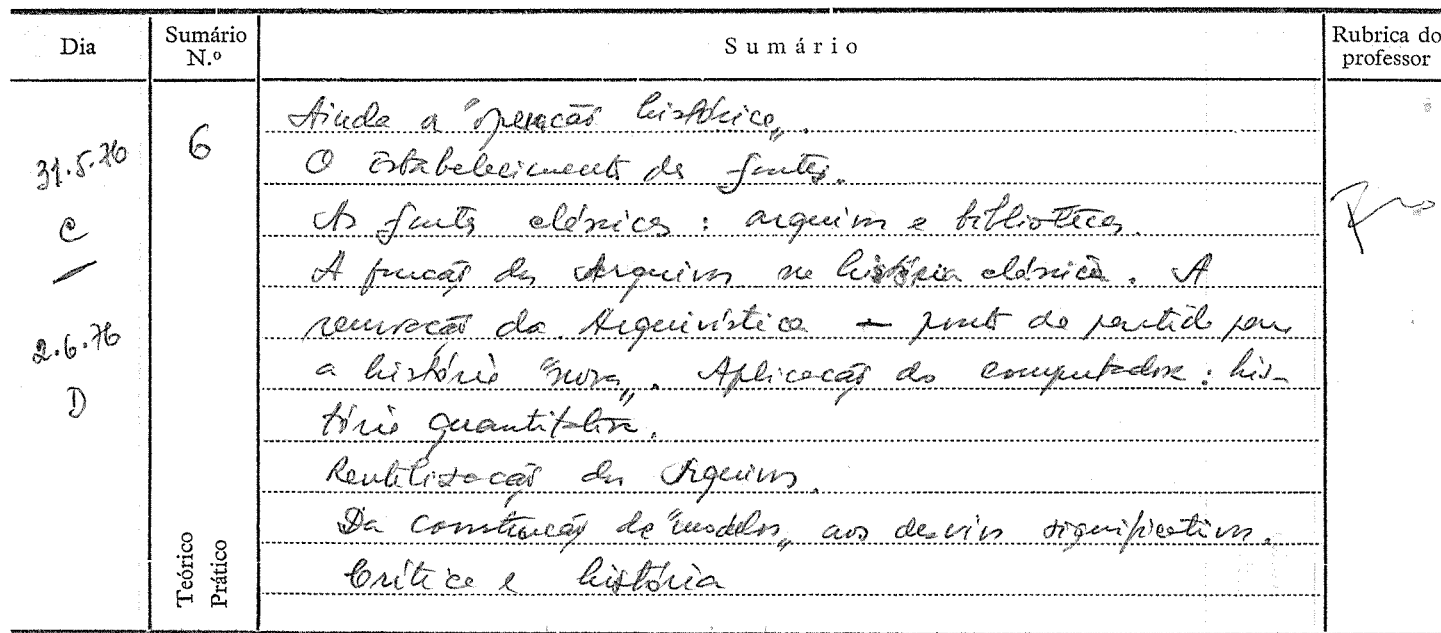 Dia
Sumário N.º
Sumário
Rubrica do professor
31.5.76
C
2.6.76
D
6
Teórico
Prático
Ainda a "operação histórica".
O estabelecimento das fontes.
As fontes clássicas: arquivos e bibliotecas.
A função dos Arquivos na história clássica. A
renovação da Arquivística — ponto de partida para
a história "nova". Aplicação do computador: his-
tória quantitativa.
Reutilização dos Arquivos.
Da construção de "modelos" aos desvios significativos.
Crítica e história